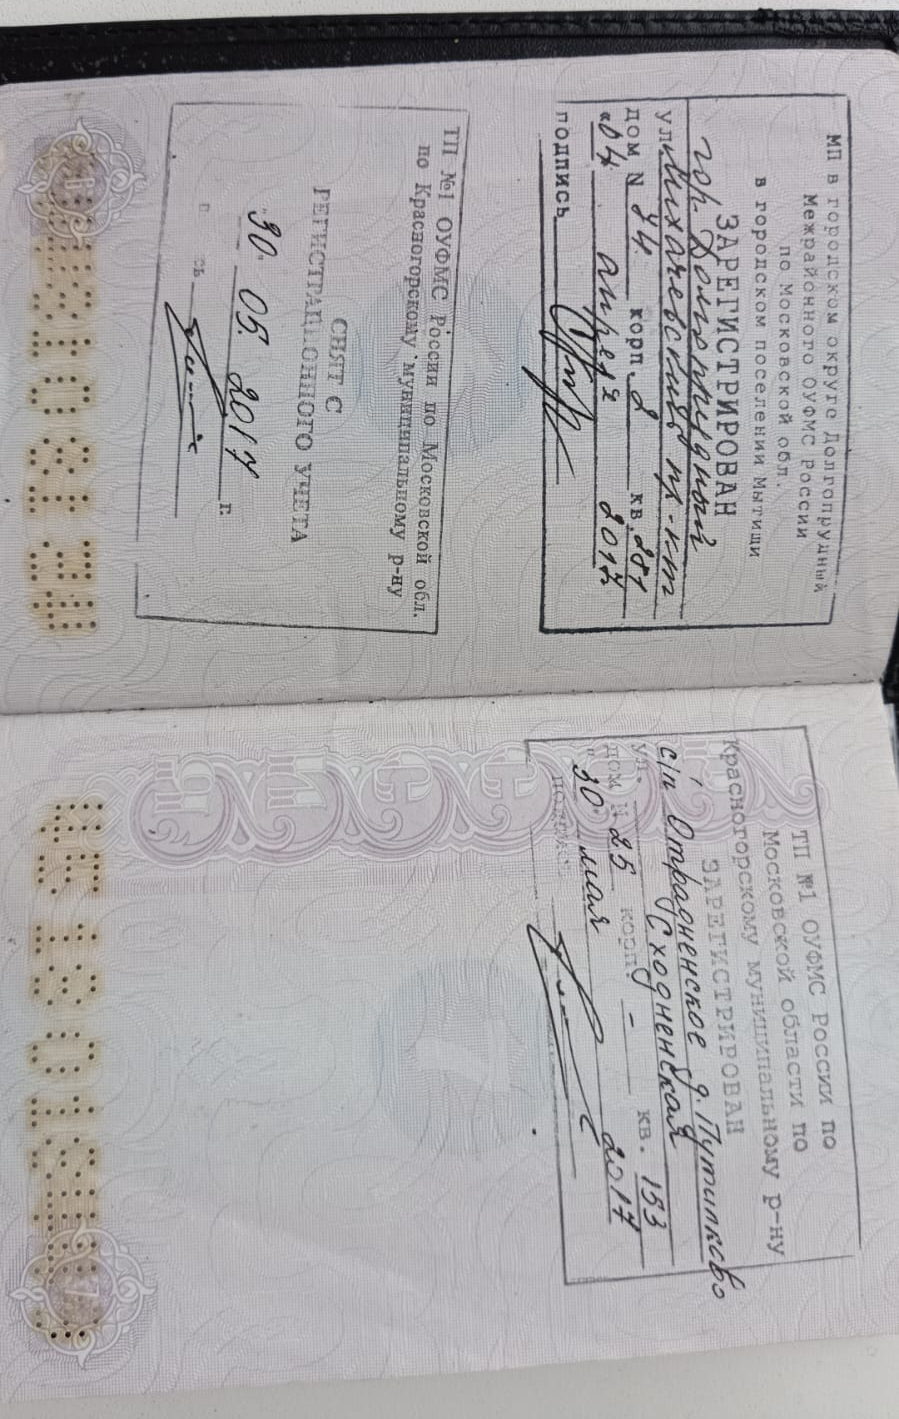 МП в городском округе Долгопрудный
Межрайонного ОУФМС России
по Московской обл.
в городском поселении Мытищи
ЗАРЕГИСТРИРОВАН
гор. Долгопрудный
ул. Лихачевский пр-кт
дом N 74 корп. 2 кв. 281
«04 апреля 2017
подпись
ТП №1 ОУФМС России по Московской обл.
по Красногорскому муниципальному р-ну
СНЯТ С
РЕГИСТРАЦИОННОГО УЧЕТА
"30" 05 2017 г.
ТП №1 ОУФМС России по
Московской области по
Красногорскому муниципальному р-ну
ЗАРЕГИСТРИРОВАН
с/п Отрадненское д. Путилково
ул. Сходненская
дом N 25 корп. - кв. 153
"30" мая 2017